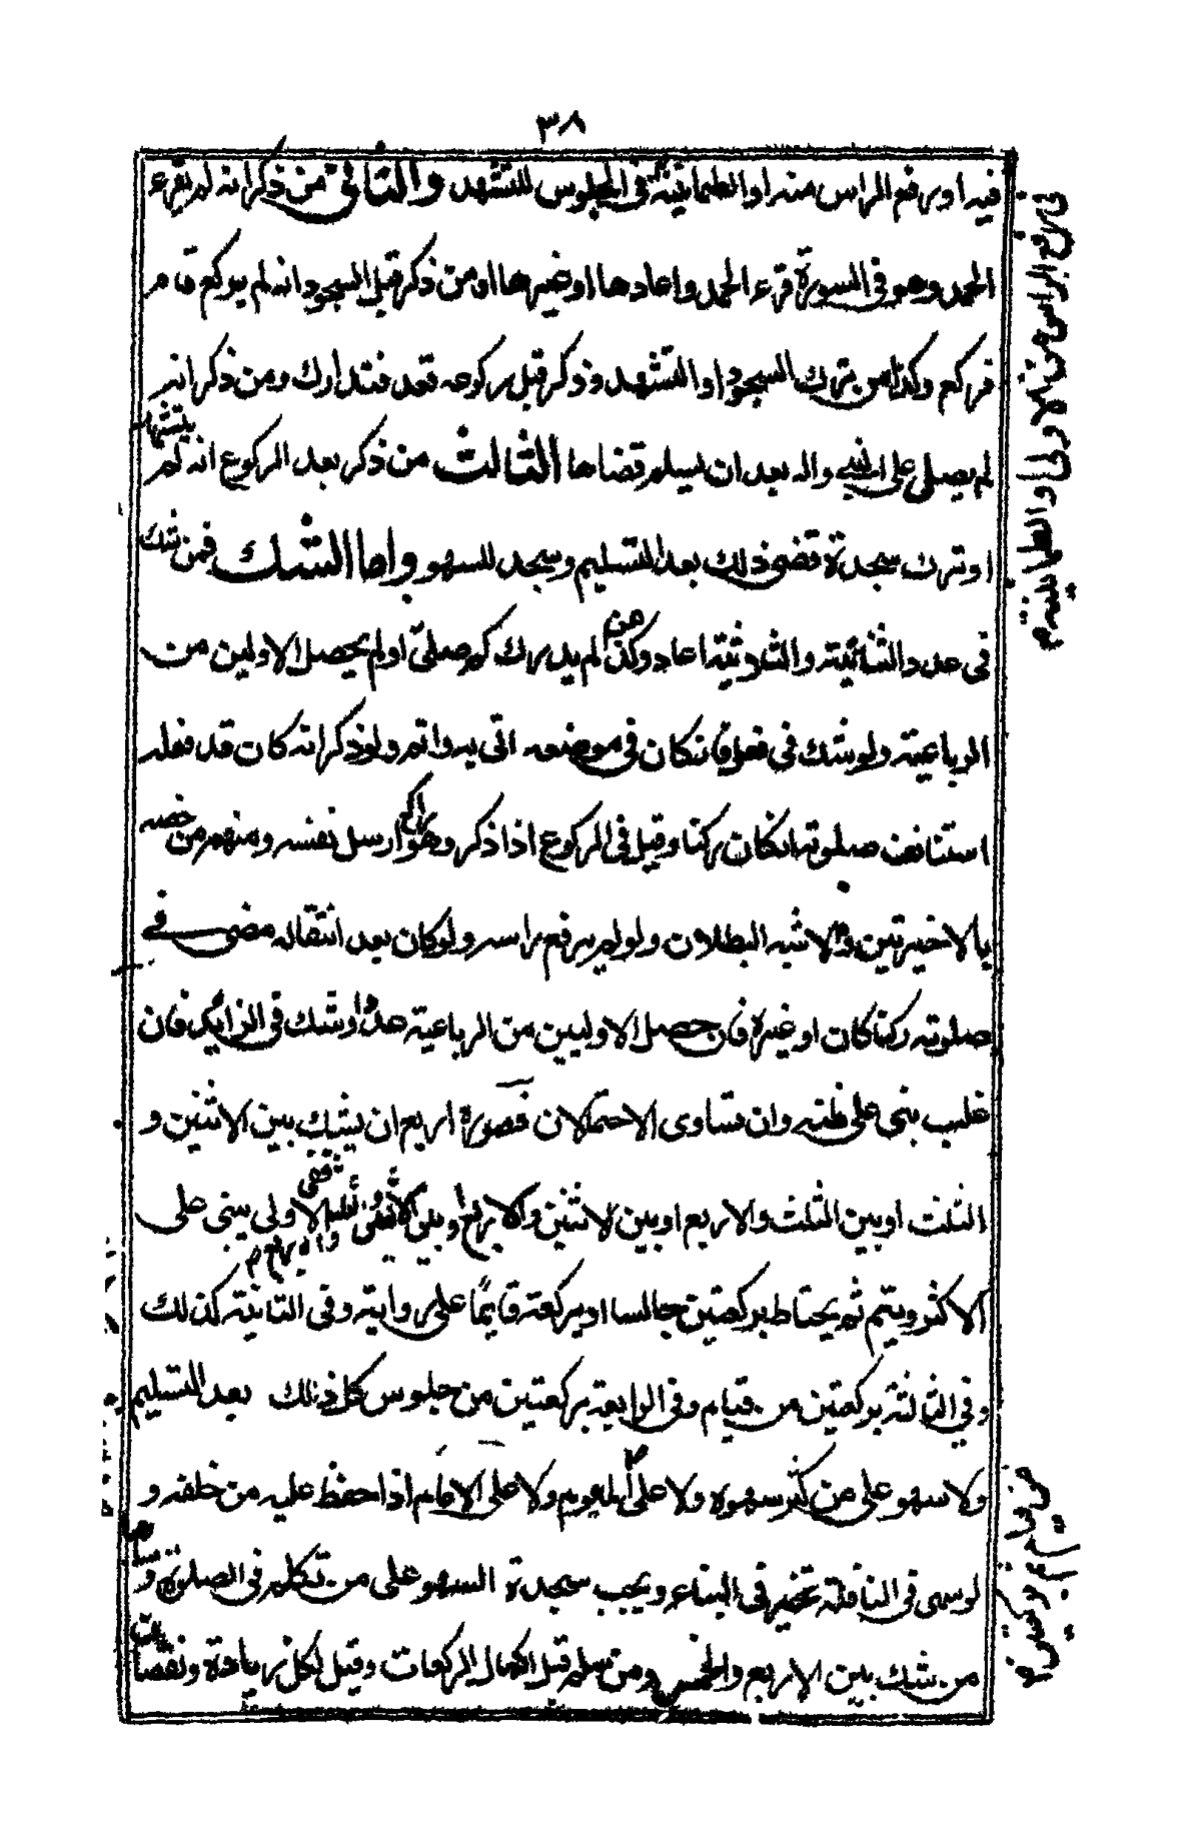 ٣٨
فيه او رفع الراس منه او الطمانينة في الجلوس للتشهد والثاني من ذكر انه لم يقرء
الحمد وهو في السورة قرء الحمد واعادها او غيرها او من ذكر قبل السجود انه لم يركع قام
فركع وكذا من ترك السجود او التشهد وذكر قبل ركوعه قعد فتدارك ومن ذكر انه
لم يصلى على النبي واله بعد ان يسلم قضاها الثالث من ذكر بعد الركوع انه لم يتشهد
او ترك سجدة قضى ذلك بعد التسليم وسجد للسهو واما الشك فمن شك
في عدد الثنائية والثلاثية اعاد وكذا من لم يدرك كم صلى او لم يحصل الاولين من
الرباعية ولو شك في فعل فانكان في موضعه اتى به واتم ولو ذكر انه كان قد فعله
استانف صلوته انكان ركنا وقيل في الركوع اذا ذكر وهو راكع ارسل نفسه ومنهم من خصه
بالاخيرتين والاشبه البطلان ولو لم يرفع راسه ولو كان بعد انتقاله مضى في
صلوته ركنا كان او غيره فان حصل الاوليين من الرباعية عددا وشك في الزائد فان
غلب بنى على ظنه وان تساوى الاحتمالان فصوره اربع ان يشك بين الاثنين و
الثلث او بين الثلث والاربع او بين الاثنين والاربع او بين الاثنين والثلث والاربع ففى الاولى يبنى على
الاكثر ويتم ثم يحتاط بركعتين جالسا او بركعة قايما على رواية وفي الثانية كذلك
وفي الثالثة بركعتين من قيام وفي الرابعة بركعتين من جلوس كل ذلك بعد التسليم
ولا سهو على من كثر سهوه ولا على الماموم ولا على الامام اذا حفظ عليه من خلفه و
لو سهى في النافلة تخير في البناء ويجب سجدة السهو على من تكلم في الصلوة ناسيا و
من شك بين الاربع والخمس ومن سلم قبل اكمال الركعات وقيل لكل زيادة ونقصان
في رفع الراس من الاولى او الطمانينة م